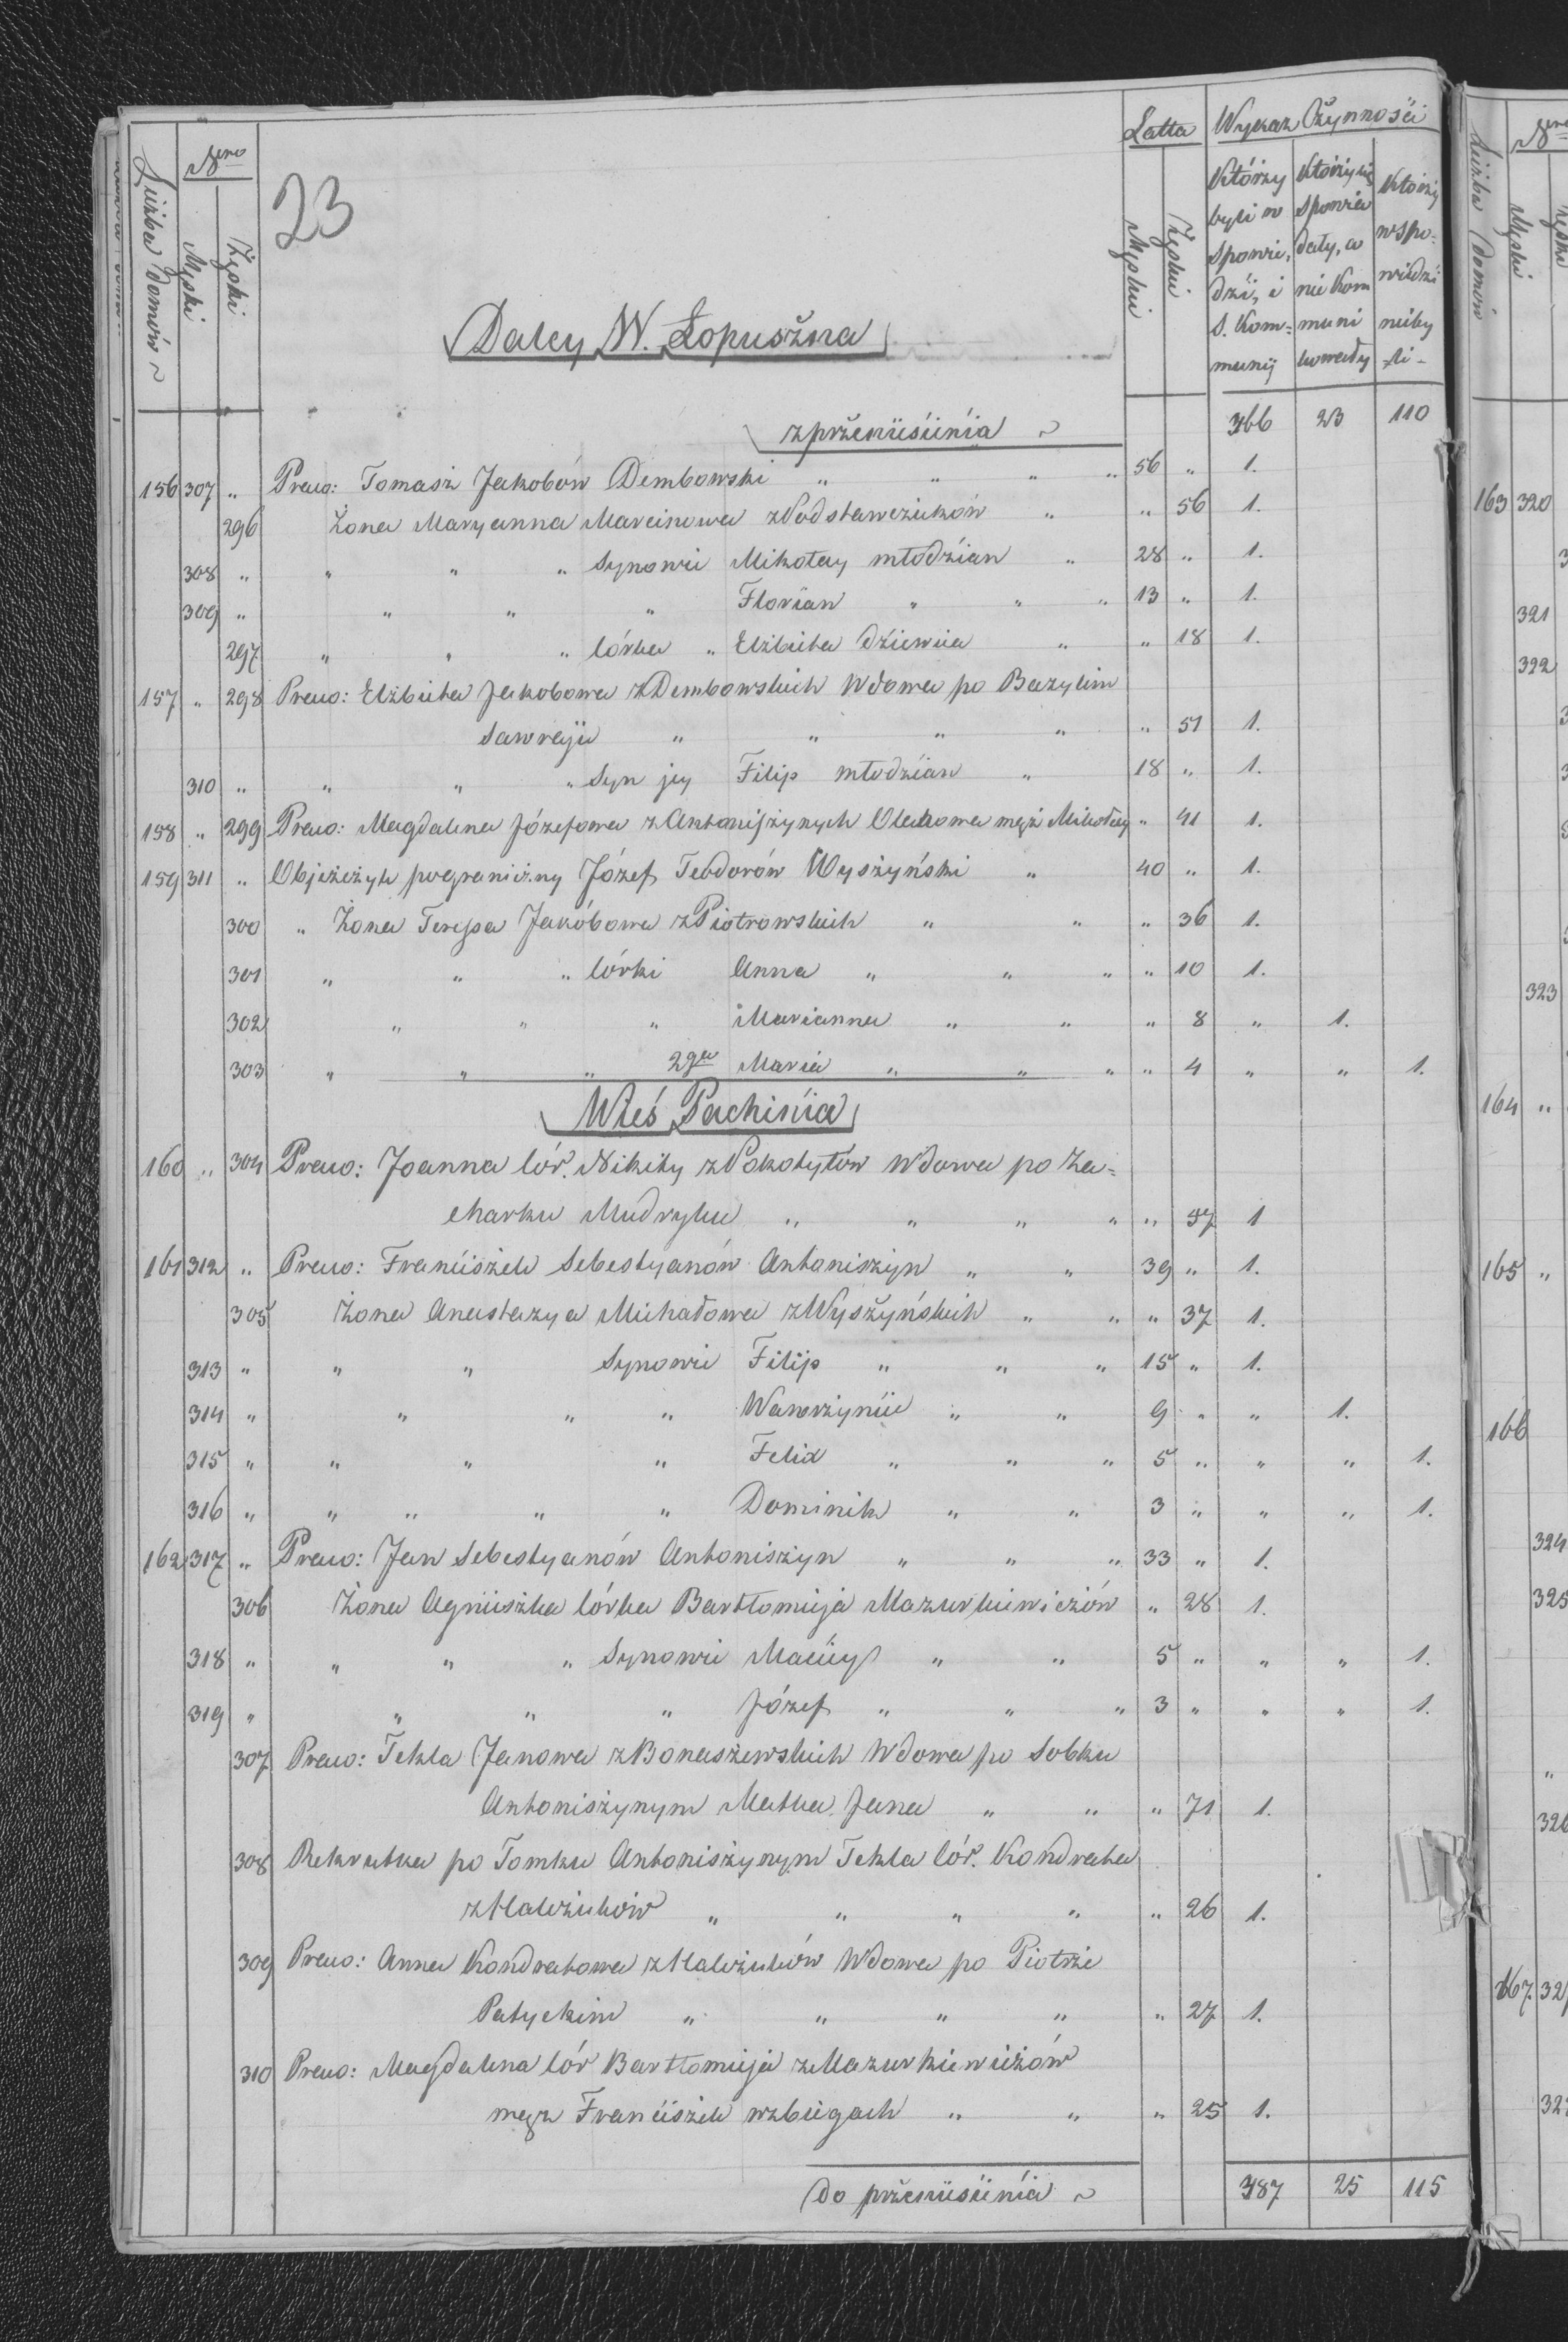 Liczba domów
Nro
Męski
Żeński
23
Latta
Męskie
Żeńskie
Wykaz Czynności
Którzy byli w Spowiedzi, i S. Kommunij
Którzy się spowiadały, a nie Kommunikowały
Którzy w spowiedzi nie byli
Daley W. Łopuszna
z przeniesienia 366 23 110
156 307 " Praco: Tomasz Jakobów Dembowski " " " " 56 " 1.
296 Żona Maryanna Marcinowa z Podstawczuków " " 56 1.
308 " " " " Synowie Mikołay młodzian " 28 " 1.
309 " " " " Florian " " " 13 " 1.
297 " " " Córka " Elżbieta dziewica " " 18 1.
157 " 298 Praco: Elżbieta Jakobowa z Dembowskich Wdowa po Bazylim
Sawraju " " " " " 51 1.
310 " " " " Syn jey Filip młodzian " 18 " 1.
158 " 299 Praco: Magdalena Józefowa z Antoniszynych mąż Mikołay " 41 1.
159 311 " Objeżczyk pograniczny Józef Teodorów Wyszyński " 40 " 1.
300 " Żona Teressa Jakóbowa z Piotrowskich " " " 36 1.
301 " " " Córki Anna " " " " 10 1.
302 " " " Marianna " " " 8 " 1.
303 " " " 2ga Maria " " " " 4 " " 1.
Wieś Pachinia
160 " 304 Praco: Joanna Cór. Nikity z Pokotyłów Wdowa po Za=
charku Mudryku " " " " " 57 1
161 312 " Praco: Franciszek Sebestyanów Antoniszyn " " 39 " 1.
305 Żona Anastazya Michałowa z Wyszyńskich " " " 37 1.
313 " " " Synowie Filip " " " 15 " 1.
314 " " " " Wawrzyniec " " 9 " " 1.
315 " " " " Felix " " " 5 " " " 1.
316 " " " " " Dominik " " 3 " " " 1.
162 317 " Praco: Jan Sebestyanów Antoniszyn " " " 33 " 1.
306 Żona Agnieszka Córka Bartłomieja Mazurkiewiczów " 28 1.
318 " " " " Synowie Maciey " " 5 " " " 1.
319 " " " " Józef " " " 3 " " " 1.
307 Praco: Tekla Janowa z Bonaszewskich Wdowa po Sobku
Antoniszynym Matka Jana " " " 71 1.
308 Rekrutka po Tomku Antoniszynym Tekla Cór. Kondrata
z Halczuków " " " " " 26 1.
309 Praco: Anna Kondratowa z Halczuków Wdowa po Piotrze
Patyckim " " " " " 27 1.
310 Praco: Magdalena Cór Bartłomieja z Mazurkiewiczów
mąż Franciszek w zbiegach " " " 25 1.
do przeniesienia 387 25 115
Liczba domów
Nro
Męski
163 320
321
322
323
164 "
165 "
166
324
325
"
326
167